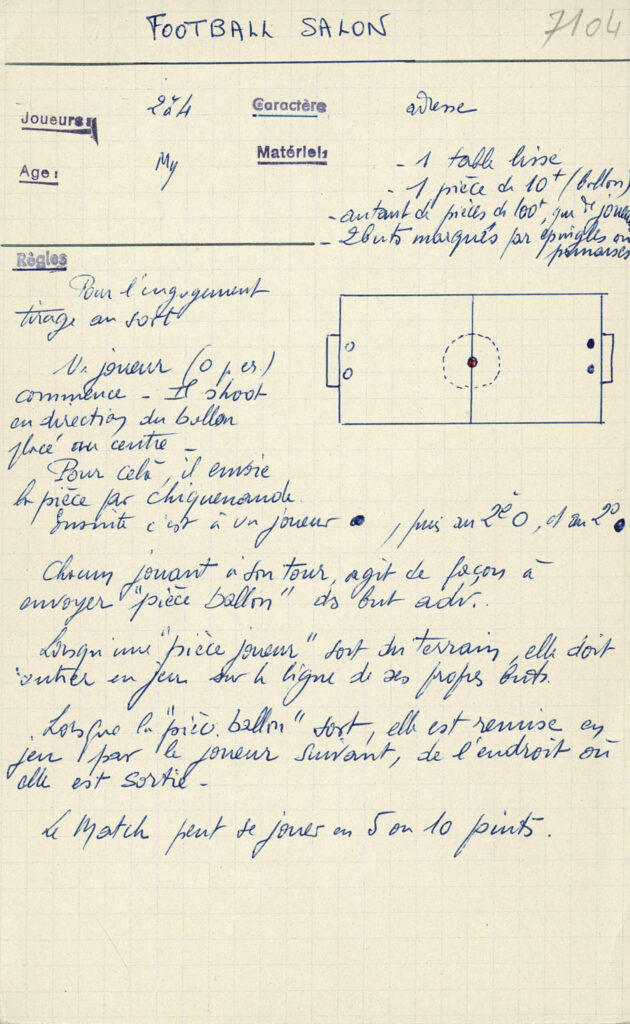 FOOTBALL SALON
7104
Joueurs: 2 à 4
Caractère adresse
Age: My
Matériel: - 1 table lisse
- 1 pièce de 10ᵗ (ballon)
- autant de pièces de 100ᵗ, que de joueurs
- 2 buts marqués par épingles ou
punaises
Règles
Pour l'engagement
tirage au sort
Un joeur (O p. ex.)
commence - Il shoot
en direction du ballon
placé au centre -
Pour celà, il envoie
la pièce par chiquenaude.
Ensuite c'est à un joueur ●, puis au 2è O, et au 2è ●
Chacun jouant à son tour, agit de façon à
envoyer "pièce ballon" ds but adv..
Lorsqu'une "pièce joueur" sort du terrain, elle doit
rentrer en jeu sur la ligne de ses propres buts.
Lorsque la "pièce ballon" sort, elle est remise en
jeu par le joueur suivant, de l'endroit où
elle est sortie -
Le Match peut se jouer en 5 ou 10 points.